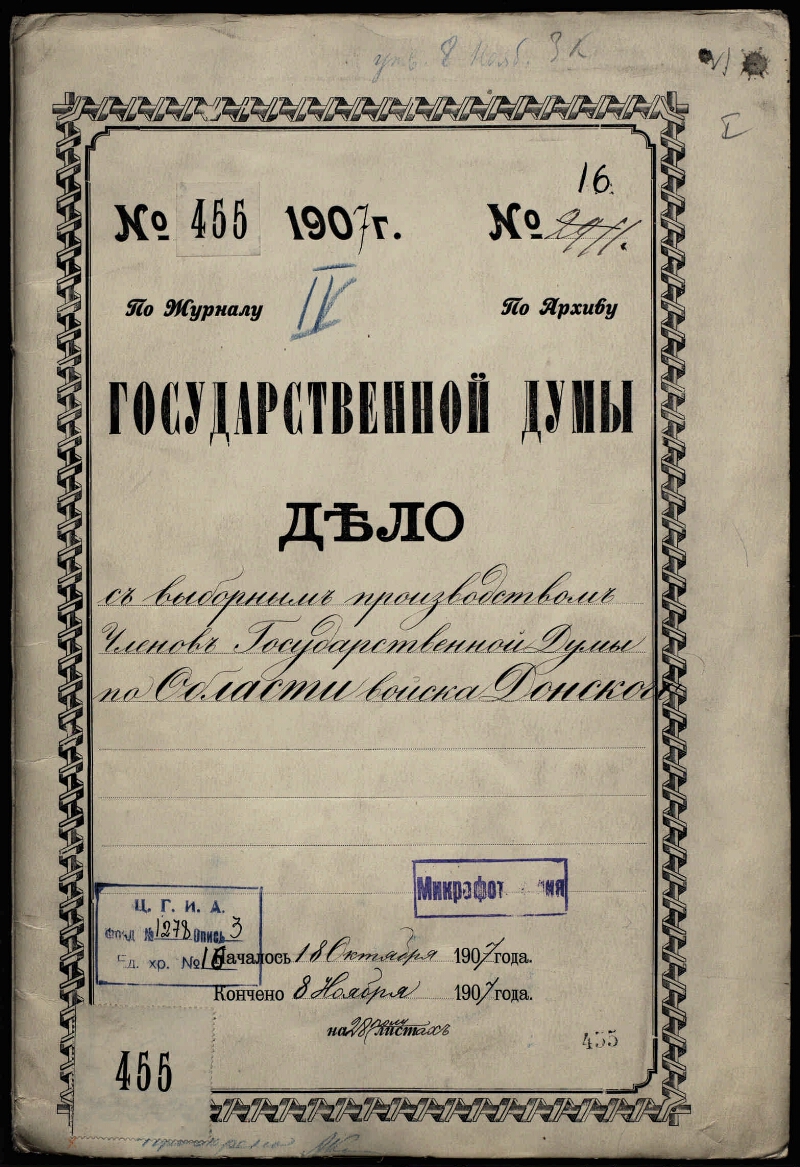 утв. 8 Нояб. 3 К
I
16.
№ 455 1907 г. №
По Журналу IV По Архиву
ГОСУДАРСТВЕННОЙ ДУМЫ
ДѢЛО
съ выборнымъ производствомъ
Членовъ Государственной Думы
по Области войска Донскою
Ц. Г. И. А.
Фонд № 1278 Опись 3
Ед. хр. № 16
Началось 18 Октября 1907 года.
Кончено 8 Ноября 1907 года.
на 28 листахъ
455
455